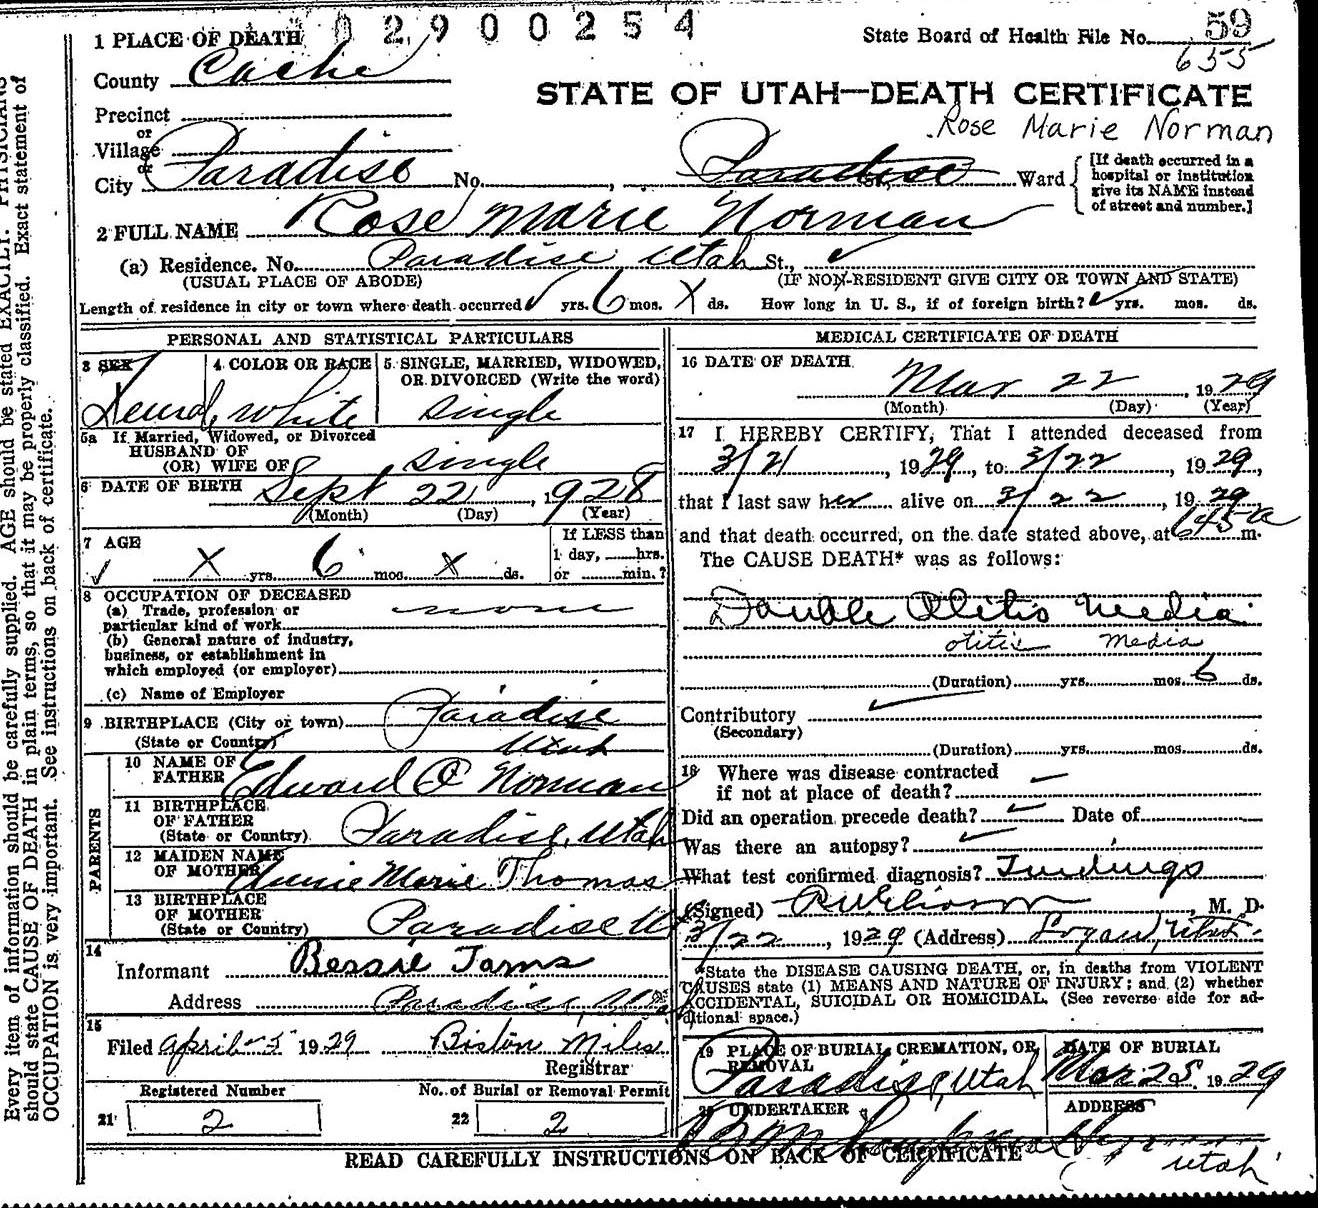 02900254
1 PLACE OF DEATH
State Board of Health File No. 59
655
County Cache
STATE OF UTAH—DEATH CERTIFICATE
Rose Marie Norman
Precinct
or
Village
or
City Paradise No. , Paradise St., Ward
[If death occurred in a hospital or institution give its NAME instead of street and number.]
2 FULL NAME Rose Marie Norman
(a) Residence. No. Paradise Utah St.,
(USUAL PLACE OF ABODE) (IF NON-RESIDENT GIVE CITY OR TOWN AND STATE)
Length of residence in city or town where death occurred ✓ yrs. 6 mos. X ds. How long in U. S., if of foreign birth? ✓ yrs. mos. ds.
PERSONAL AND STATISTICAL PARTICULARS
3 SEX
4 COLOR OR RACE
White
5 SINGLE, MARRIED, WIDOWED, OR DIVORCED (Write the word)
Single
5a If Married, Widowed, or Divorced
HUSBAND OF
(OR) WIFE OF Single
6 DATE OF BIRTH Sept 22, 1928
(Month) (Day) (Year)
7 AGE
✓ X yrs. 6 mos. X ds.
If LESS than
1 day, hrs.
or min.?
8 OCCUPATION OF DECEASED
(a) Trade, profession or
particular kind of work none
(b) General nature of industry,
business, or establishment in
which employed (or employer)
(c) Name of Employer
9 BIRTHPLACE (City or town) Paradise
(State or Country) Utah
PARENTS
10 NAME OF
FATHER Edward C Norman
11 BIRTHPLACE
OF FATHER
(State or Country) Paradise, Utah
12 MAIDEN NAME
OF MOTHER Annie Marie Thomas
13 BIRTHPLACE
OF MOTHER
(State or Country) Paradise Ut
14
Informant Bessie Jams
Address Paradise, Utah
15
Filed April 5 1929 Miles
Registrar
Registered Number
21 2
No. of Burial or Removal Permit
22 2
MEDICAL CERTIFICATE OF DEATH
16 DATE OF DEATH
Mar 22, 1929
(Month) (Day) (Year)
17 I HEREBY CERTIFY, That I attended deceased from
3/21, 1929, to 3/22, 1929,
that I last saw her alive on 3/22, 1929
and that death occurred, on the date stated above, at 645 a m.
The CAUSE DEATH* was as follows:
Double Otitis Media
otitis media
(Duration) yrs. mos. 6 ds.
Contributory
(Secondary)
(Duration) yrs. mos. ds.
18 Where was disease contracted
if not at place of death?
Did an operation precede death? Date of
Was there an autopsy?
What test confirmed diagnosis? Findings
(Signed) , M. D.
3/22, 1929 (Address) Logan, Utah.
*State the DISEASE CAUSING DEATH, or, in deaths from VIOLENT
CAUSES state (1) MEANS AND NATURE OF INJURY; and (2) whether
ACCIDENTAL, SUICIDAL OR HOMICIDAL. (See reverse side for ad-
ditional space.)
19 PLACE OF BURIAL CREMATION, OR
REMOVAL
Paradise, Utah
DATE OF BURIAL
Mar 25, 1929
20 UNDERTAKER
ADDRESS
Utah
READ CAREFULLY INSTRUCTIONS ON BACK OF CERTIFICATE
Every item of information should be carefully supplied. AGE should be stated EXACTLY. PHYSICIANS
should state CAUSE OF DEATH in plain terms, so that it may be properly classified. Exact statement of
OCCUPATION is very important. See instructions on back of certificate.